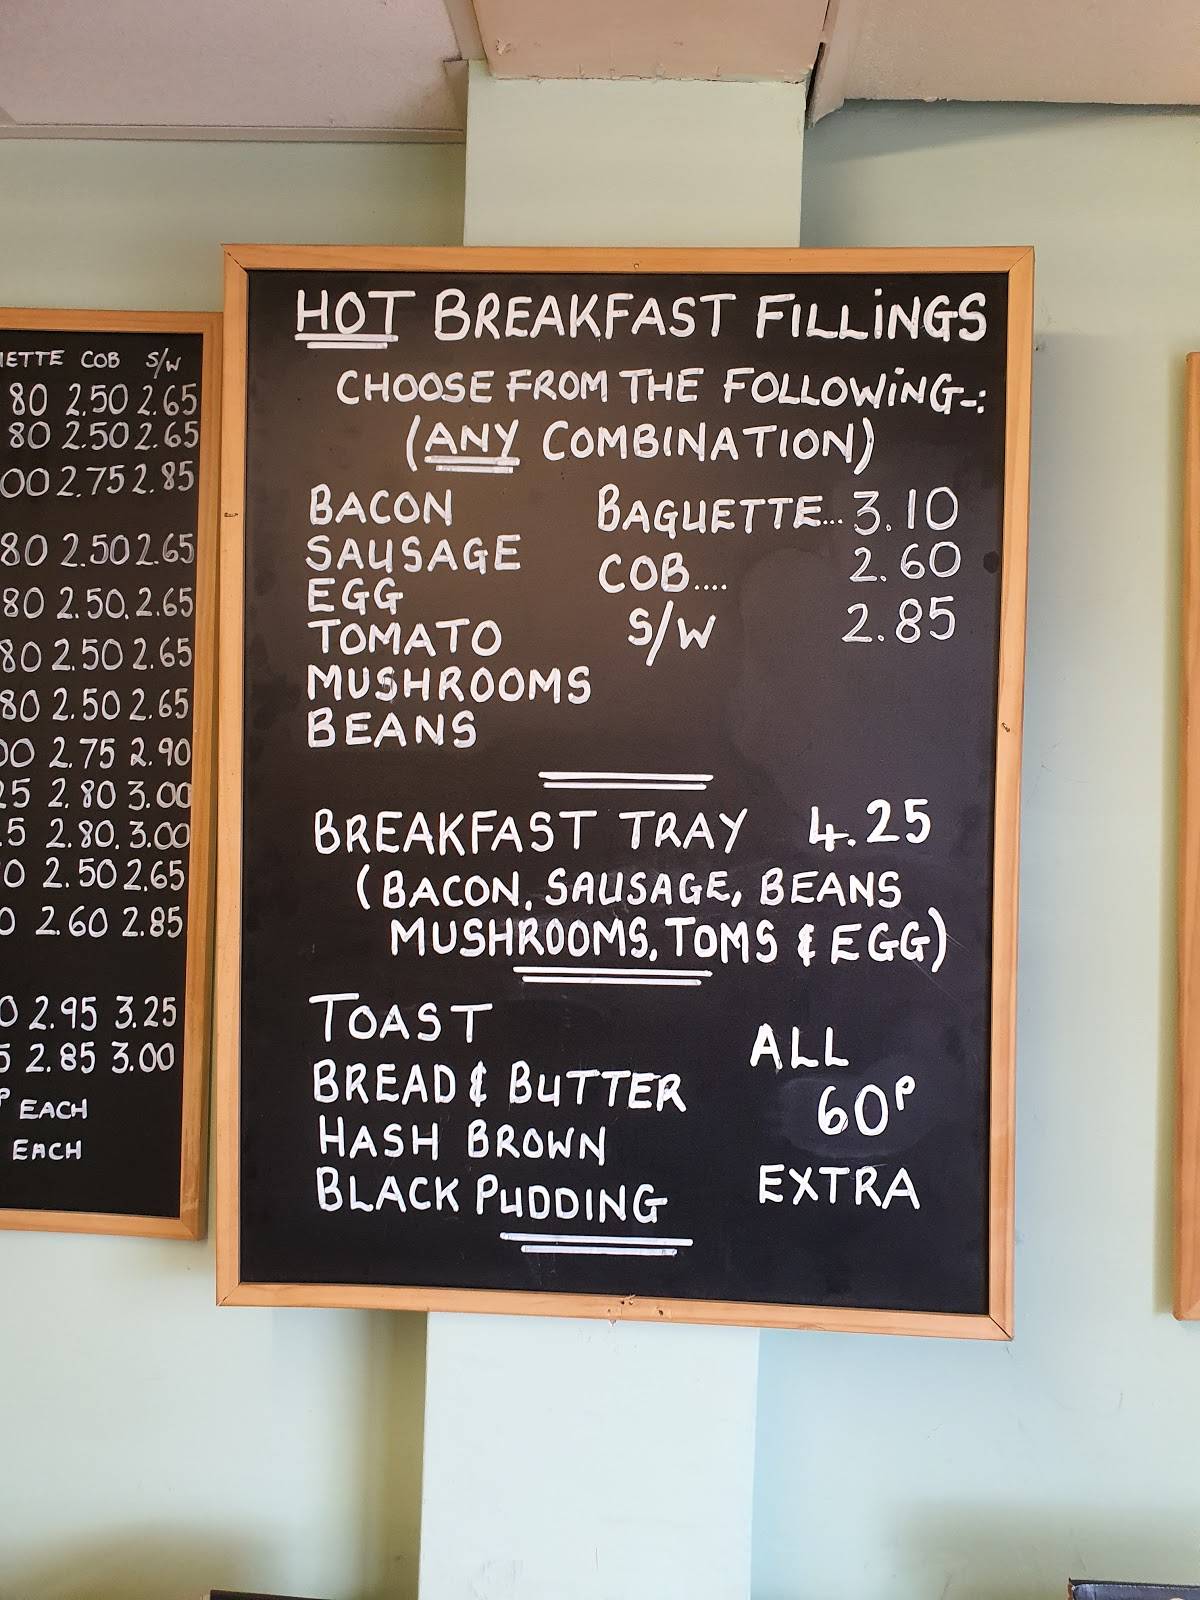 COB S/W
80 2.50 2.65
80 2.50 2.65
00 2.75 2.85
80 2.50 2.65
80 2.50. 2.65
80 2.50 2.65
80 2.50 2.65
00 2.75 2.90
25 2.80 3.00
.5 2.80. 3.00
0 2.50 2.65
0 2.60 2.85
0 2.95 3.25
5 2.85 3.00
P EACH
EACH
HOT BREAKFAST FILLiNGS
CHOOSE FROM THE FOLLOWiNG-:
(ANY COMBINATION)
BACON BAGUETTE... 3.10
SAUSAGE COB.... 2.60
EGG S/W 2.85
TOMATO
MUSHROOMS
BEANS
BREAKFAST TRAY 4.25
(BACON, SAUSAGE, BEANS
MUSHROOMS, TOMS & EGG)
TOAST
BREAD & BUTTER
HASH BROWN
BLACK PUDDING
ALL
60P
EXTRA